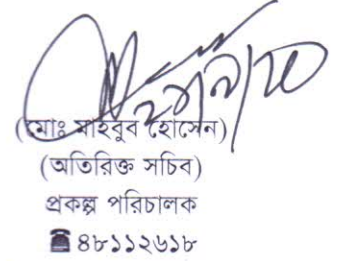 (মোঃ মাহবুব হোসেন)
(অতিরিক্ত সচিব)
প্রকল্প পরিচালক
☎ ৪৮১১২৬১৮